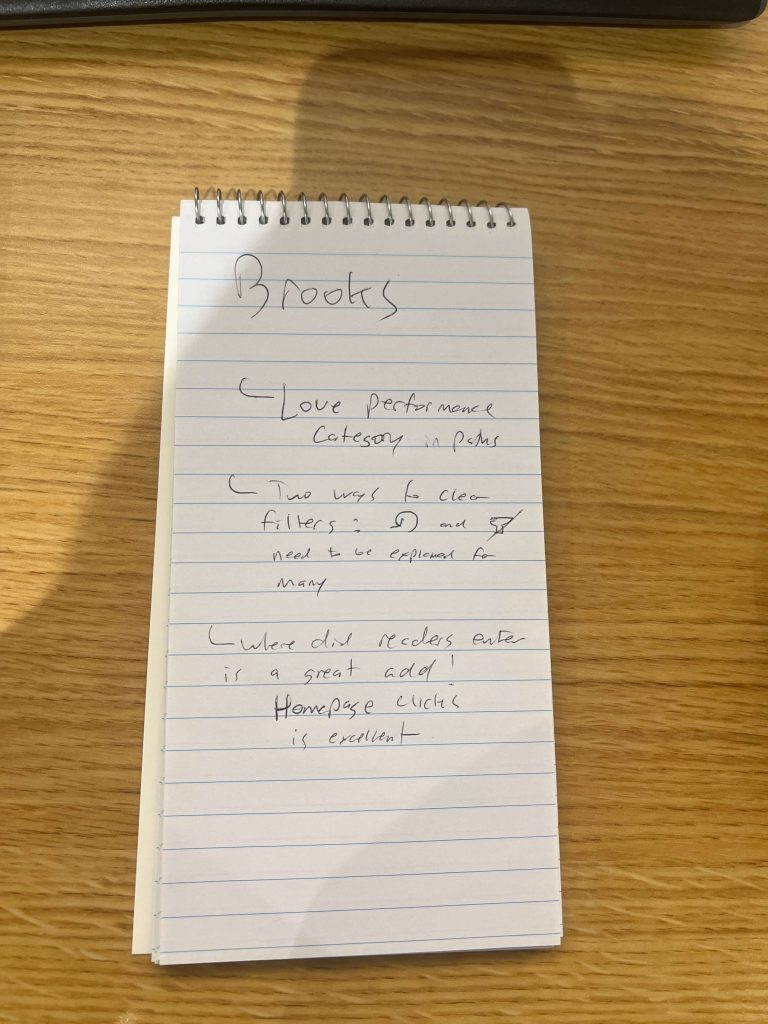 Brooks
Love performance
Category in paths
Two ways to clear
filters: and
need to be explained for
many
where did readers enter
is a great add!
Homepage clicks
is excellent